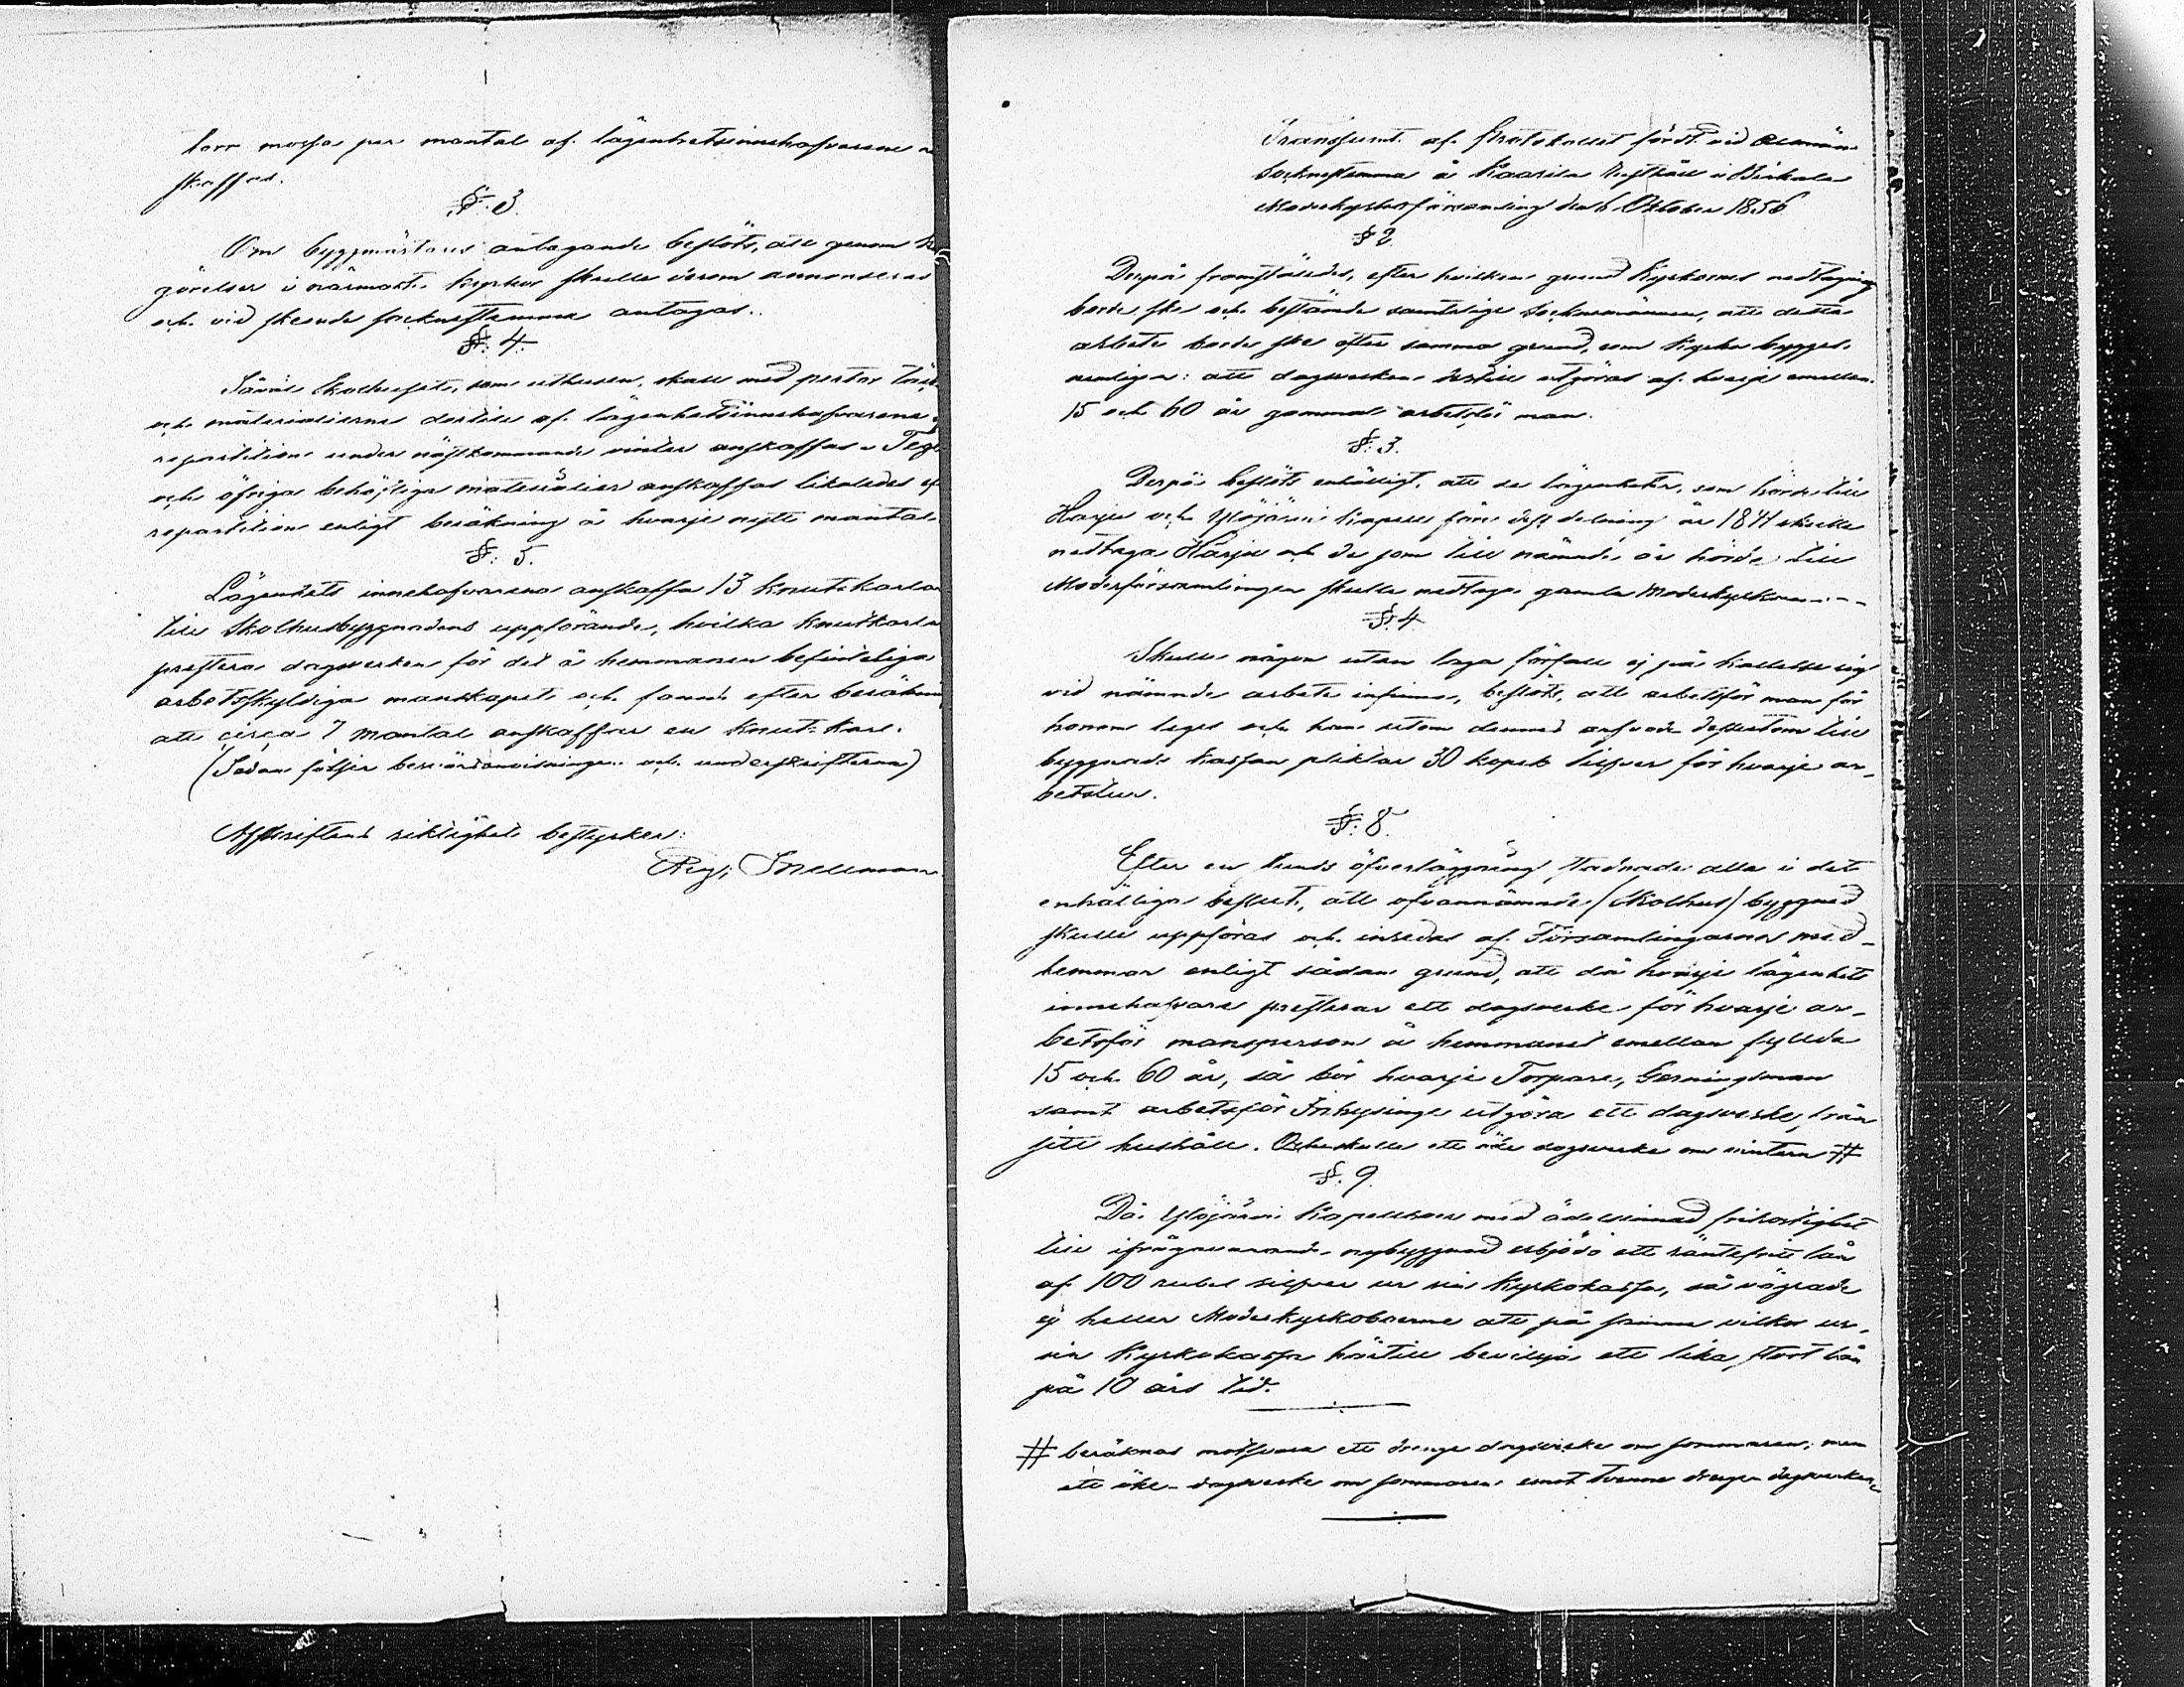 torr mossa per mantal af lägenhetsinnehafvarene
skaffad.
§. 3.
Om byggmästares antagande beslöts, att genom
görelser i närmaste kyrkor skulle derom annonseras
och vid skeende socknestemma antagas.
§. 4.
Såväl Skolhuset, som uthusen, skall med pertor
och materialierne dertill af lägenhetsinnehafvarena
repartition under nästkommande vinter anskaffas.
och öfriga behöfliga materialier anskaffas likaledes
repartition enligt beräkning å hvarje nytt mantal.
§. 5.
Lägenhets innehafvarena anskaffa 13 knutkarlar
till Skolhusbyggnadens uppförande, hvilka knutkarlar
prestera dagsverken för det å hemmanen befintliga
arbetsskyldiga manskapet och fanns efter
att circa 7 mantal anskaffar en knutkarl.
(Sedan följer besvärsanvisningen och underskrifterna)
Afskriftens riktighet bestyrker:
Snellman
Transsumt af Protokollet fördt vid Allmän
Socknestemma å Kaarila Rusthåll i Birkala
Moderkyrkoförsamling den 6 Oktober 1856
§ 2.
Derpå framställdes, efter hvilken grund Kyrkornes nedtagning
borde ske och bestämde samtelige Socknemännen, att detta
arbete borde ske efter samma grund, som Kyrko bygget
nemligen: att dagsverken dertill utgöras af hvarje emellan
15 och 60 år gammal arbetsför man.
§. 3.
Derpå beslöts enhälligt, att de lägenheter, som hörde till
Harju och Ylöjärvi Kapell före dess delning år 1841 skulle
nedtaga Harju och de som till nämnde år hörde till
Moderförsamlingen skulle nedtaga gamla Moderkyrkan - - -
§. 4.
Skulle någon utan laga förfall ej på kallelse sig
vid nämnde arbete infinna, beslöts, att arbetsför man för
honom leges och han utom denned dessutom till
byggnads kassan pliktar 30 kopek silfver för hvarje ar-
betskarl.
§. 8.
Efter en stunds öfverläggning stadnade alla i det
enhälliga beslut, att ofvannämnde (Skolhus) byggnad
skulle uppföras och inredas af Församlingarnes med-
lemmar enligt sådan grund, att då hvarje lägenhets
innehafvare presterar ett dagsverke för hvarje ar-
betsför mansperson å hemmanet emellan fyllda
15 och 60 år, så bör hvarje Torpare, Gerningsman
samt arbetsför Inhysinge utgöra ett dagsverke från
sitt hushåll. Och skulle ett öke dagsverke om vintern #
§. 9.
Då Ylöjärvi Kapellboer med ädelsinnad frikostighet
till ifrågavarande nybyggnad erbjödo ett räntefritt lån
af 100 rubel silfver ur sin Kyrkokassa, så vägrade
ej heller Moderkyrkoboerne att på samma vilkor ur
sin Kyrkokassa härtill bevilja ett lika stort lån
på 10 års tid.
# beräknas motsvara ett drenge dagsverke om sommaren, men
ett öke-dagsverke om sommaren emot tvenne drenge dagsverken